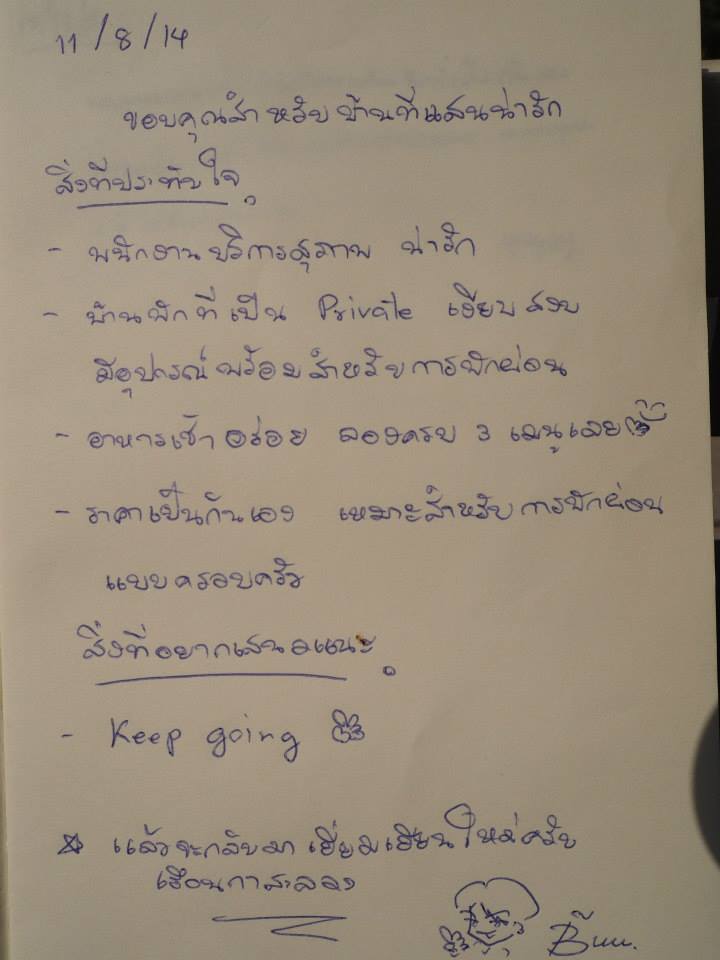 11/8/14
ขอบคุณสำหรับบ้านที่แสนน่ารัก
สิ่งที่ประทับใจ
- พนักงานบริการสุภาพ น่ารัก
- บ้านพักที่เป็น Private เงียบสงบ
มีอุปกรณ์พร้อมสำหรับการพักผ่อน
- อาหารเช้าอร่อย ลองครบ 3 เมนูเลย
- ราคาเป็นกันเอง เหมาะสำหรับการพักผ่อน
แบบครอบครัว
สิ่งที่อยากเสนอแนะ
- Keep going
☆ แล้วจะกลับมาเยี่ยมเยียนใหม่ครับ
เฮือนกาสะลอง